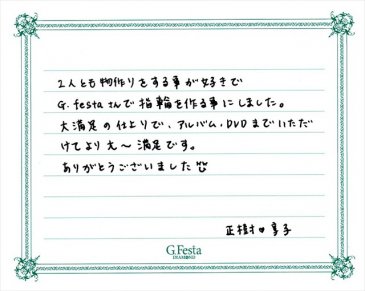 2人とも物作りをする事が好きで
G.festaさんで指輪を作る事にしました。
大満足の仕上りで、アルバム・DVDまでいただ
けてより大〜満足です。
ありがとうございました
正樹 ♥ 享子
G.Festa
DIAMOND